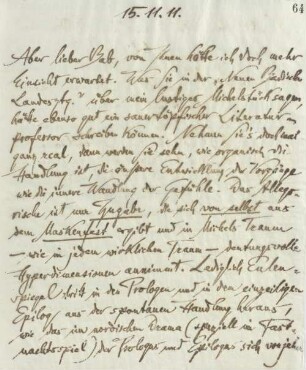 64
15.11.11.
Aber lieber Bab, von Ihnen hätte ich doch mehr
Einsicht erwartet. Was Sie in der „Neuen Badischen
Landesztg." über mein lustiges Michelstück sagen
hätte ebenso gut ein sauertöpfischer Literatur-
professor schreiben können. Nehmen Sie's doch mal
ganz real, dann werden Sie sehn, wie organisch die
Handlung ist, die äussere Entwicklung der Vorgänge
wie die innere Wandlung der Gefühle. Das Allego-
rische ist nur Zugabe, die sich von selbst aus
dem Maskenfest ergibt und in Michels Traum
— wie in jedem wirklichen Traum — deutungsvolle
Hyperdimensionen annimmt. Lediglich Eulen-
spiegel tritt in den Prologen und in dem einzeiligen
Epilog aus der spontanen Handlung heraus,
wie das im nordischen Drama (speziell im Fast-
nachtsspiel) der Prologus und Epilogus sich von jeher